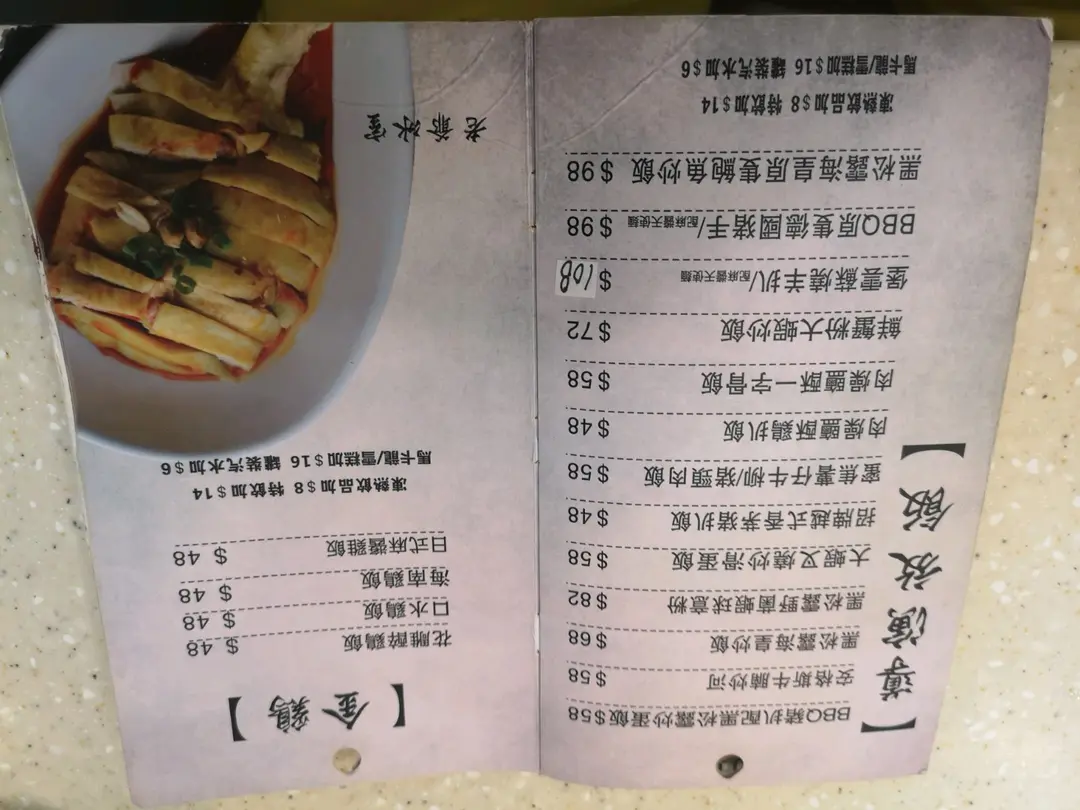 【導演放飯】
BBQ豬扒配黑松露炒蛋飯 $58
安格斯牛腩炒河 $58
黑松露海皇炒飯 $68
黑松露野菌蝦球意粉 $82
大蝦叉燒炒滑蛋飯 $58
招牌越式香茅豬扒飯 $48
蜜焦薯仔牛柳/豬頸肉飯 $58
肉燥鹽酥鷄扒飯 $48
肉燥鹽酥一字骨飯 $58
鮮蟹粉大蝦炒飯 $72
堡雲蘇燒羊扒/配麻醬天使麵 $108
BBQ原隻德國豬手/配麻醬天使麵 $98
黑松露海皇原隻鮑魚炒飯 $98
凍熱飲品加$8 特飲加$14
馬卡龍/雪糕加$16 罐裝汽水加$6
【金鷄】
花雕醉鷄飯 $48
口水鷄飯 $48
海南鷄飯 $48
日式麻醬雞飯 $48
凍熱飲品加$8 特飲加$14
馬卡龍/雪糕加$16 罐裝汽水加$6
老爺冰室